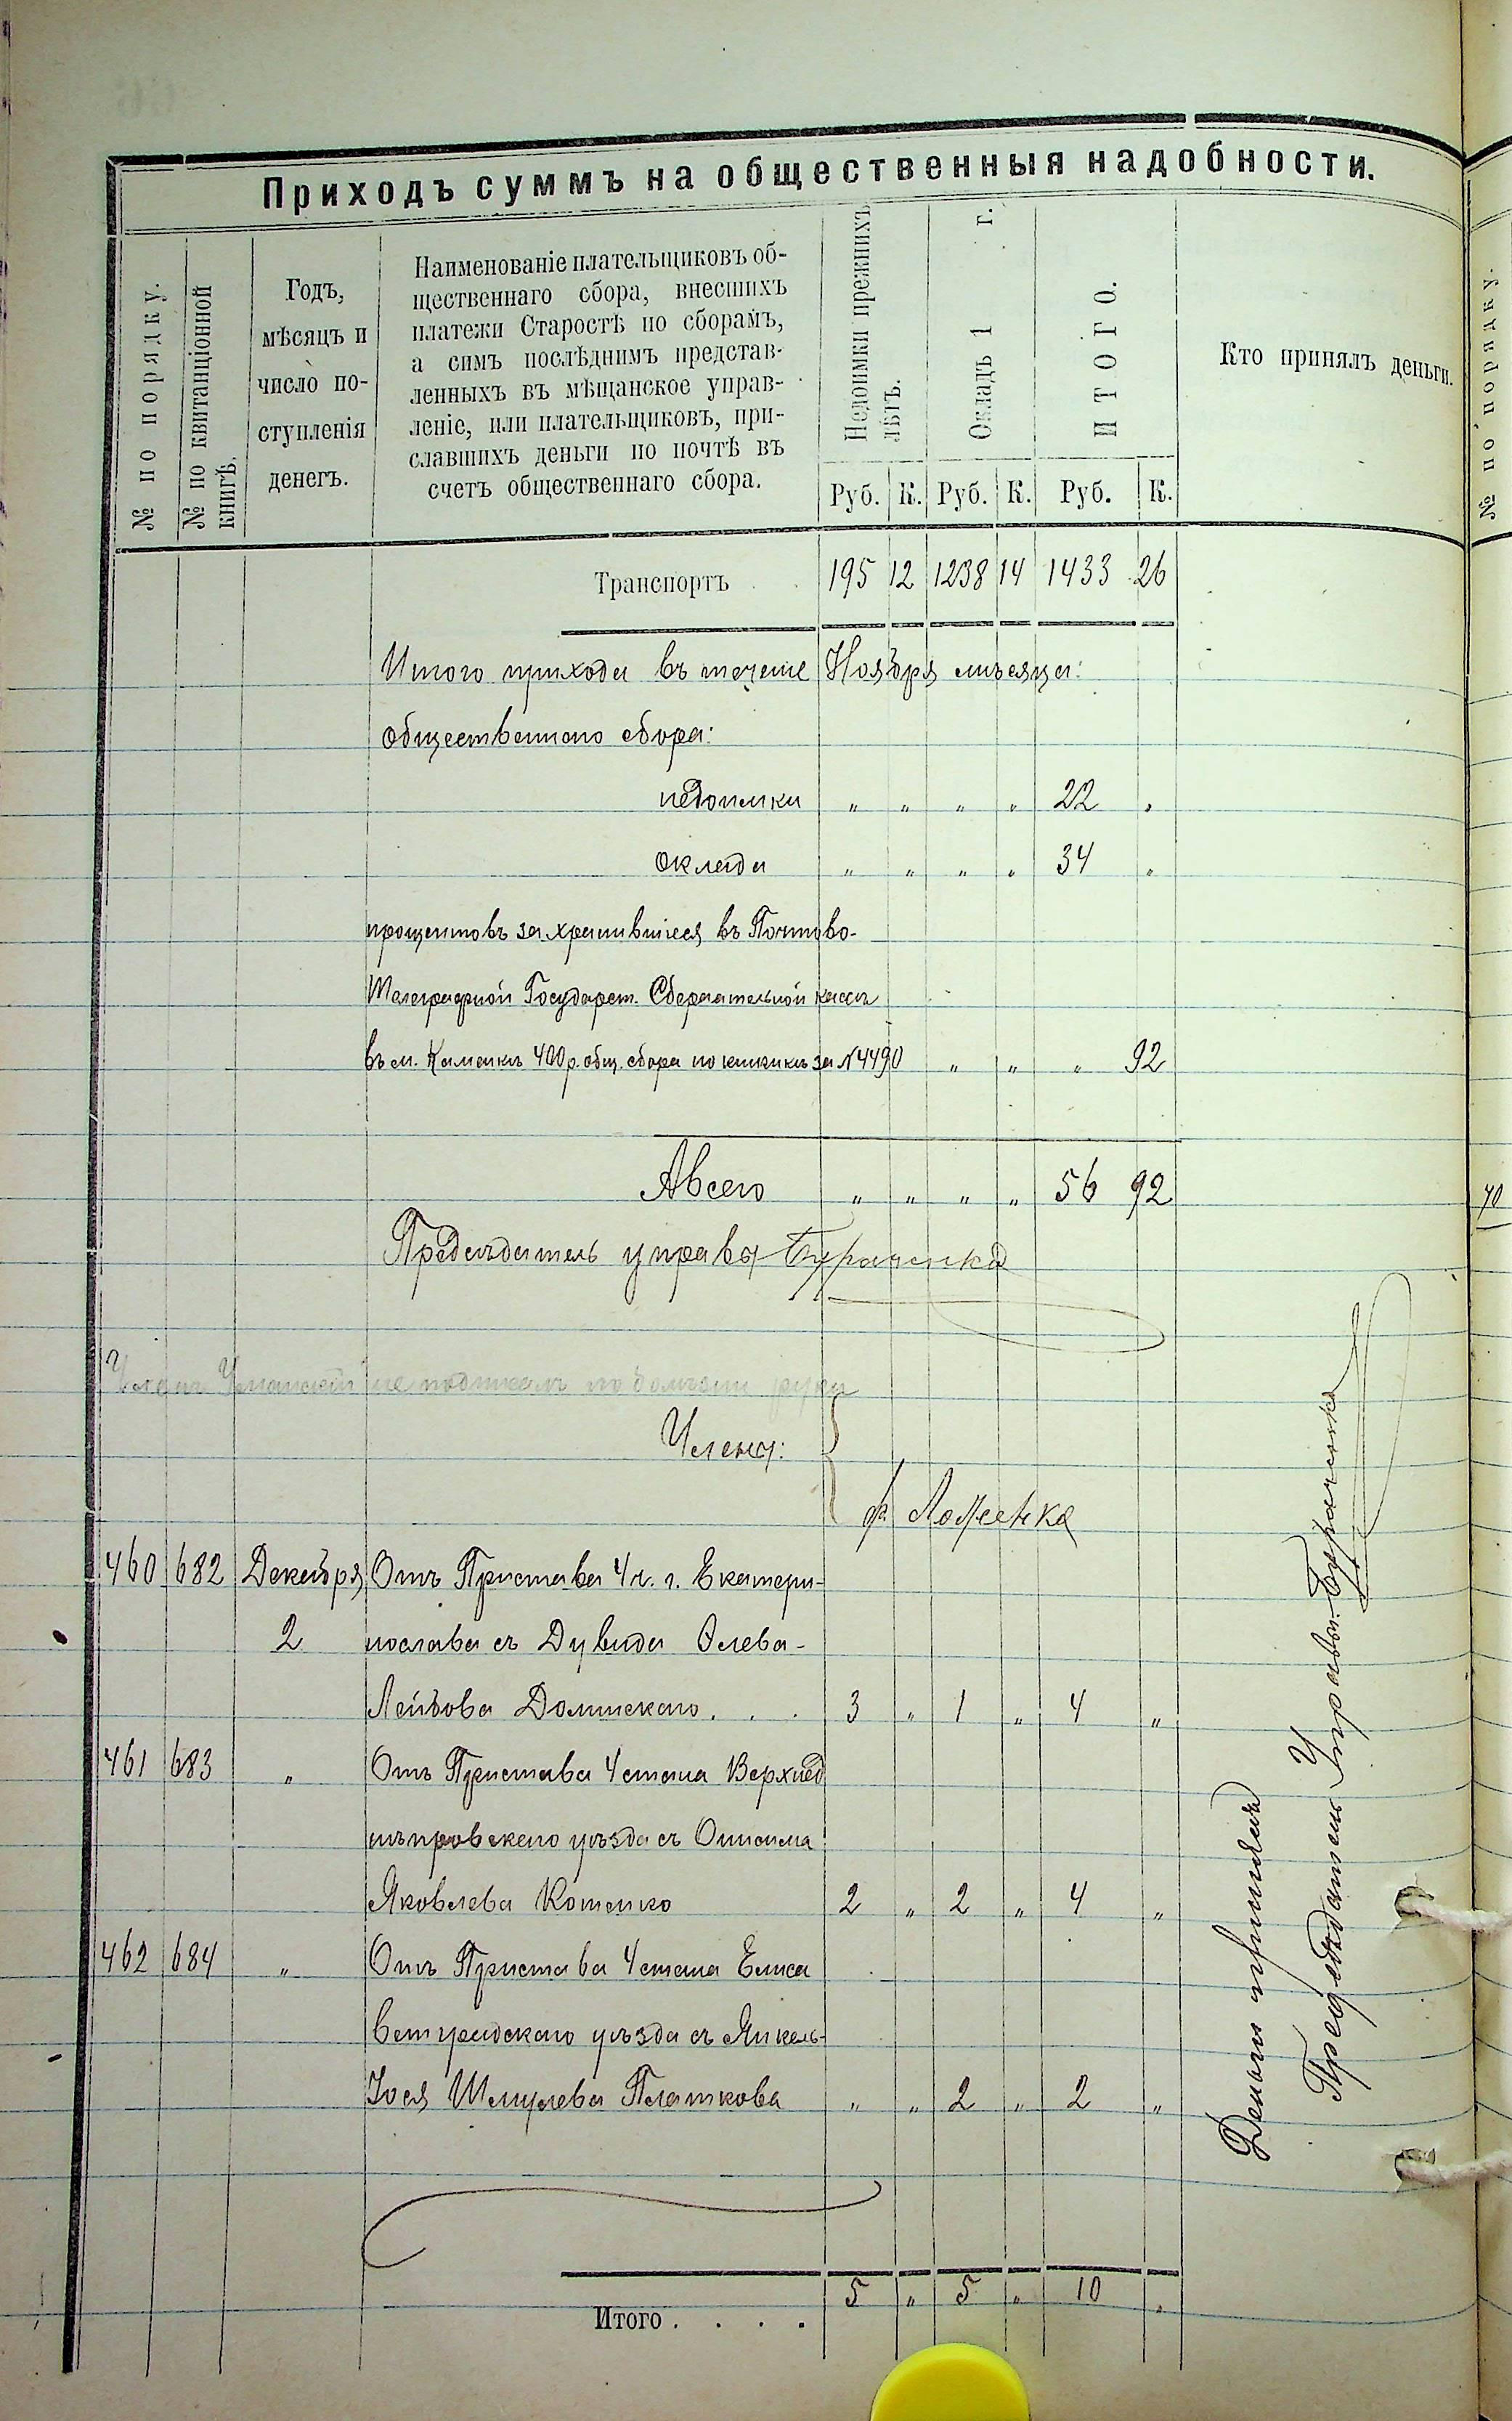 Приходъ суммъ на общественныя надобности.
№ по порядку.
№ по квитанціонной
книгѣ.
Годъ,
мѣсяцъ и
число по-
ступленія
денегъ.
Наименованіе плательщиковъ об-
щественнаго сбора, внесшихъ
платежи Старостѣ по сборамъ,
а симъ послѣднимъ представ-
ленныхъ въ мѣщанское управ-
леніе, или плательщиковъ, при-
славшихъ деньги по почтѣ въ
счетъ общественнаго сбора.
Недоимки прежнихъ
лѣтъ.
Окладъ 1 г.
ИТОГО.
Кто принялъ деньги.
Руб. К. Руб. К. Руб. К.
Транспортъ 195 12 1238 14 1433 26
Итого прихода въ теченіе Ноября мѣсяца:
общественнаго сбора:
недоимки " " " " 22 "
оклада " " " " 34 "
процентовъ за хранившіеся въ Почтово-
Телеграфной Государст. Сберегательной кассѣ
въ м. Каменкѣ 400 р. общ. сбора по книжкѣ за №4490 " " " 92
А всего " " " " 56 92
Предсѣдатель управы Бураченко
Членъ Уманскій не подписалъ по болѣзни руки
Члены:
Ф
460 682 Декабря Отъ Пристава 4 ч. г. Екатери-
2 нослава съ Дувида Олева-
Лейбова Долинскаго . . . 3 " 1 " 4 "
461 683 " Отъ Пристава 4 стана Верхнед
нѣпровскаго уѣзда съ Онисима
Яковлева Котенко 2 " 2 " 4 "
462 684 " Отъ Пристава 4 стана Елиса
ветградскаго уѣзда съ Янкель-
Іося Шмулева Платкова " " 2 " 2 "
Итого . . . . 5 " 5 " 10 "
Деньги принялъ
Предсѣдатель Управы Бураченко
№ по порядку.
70